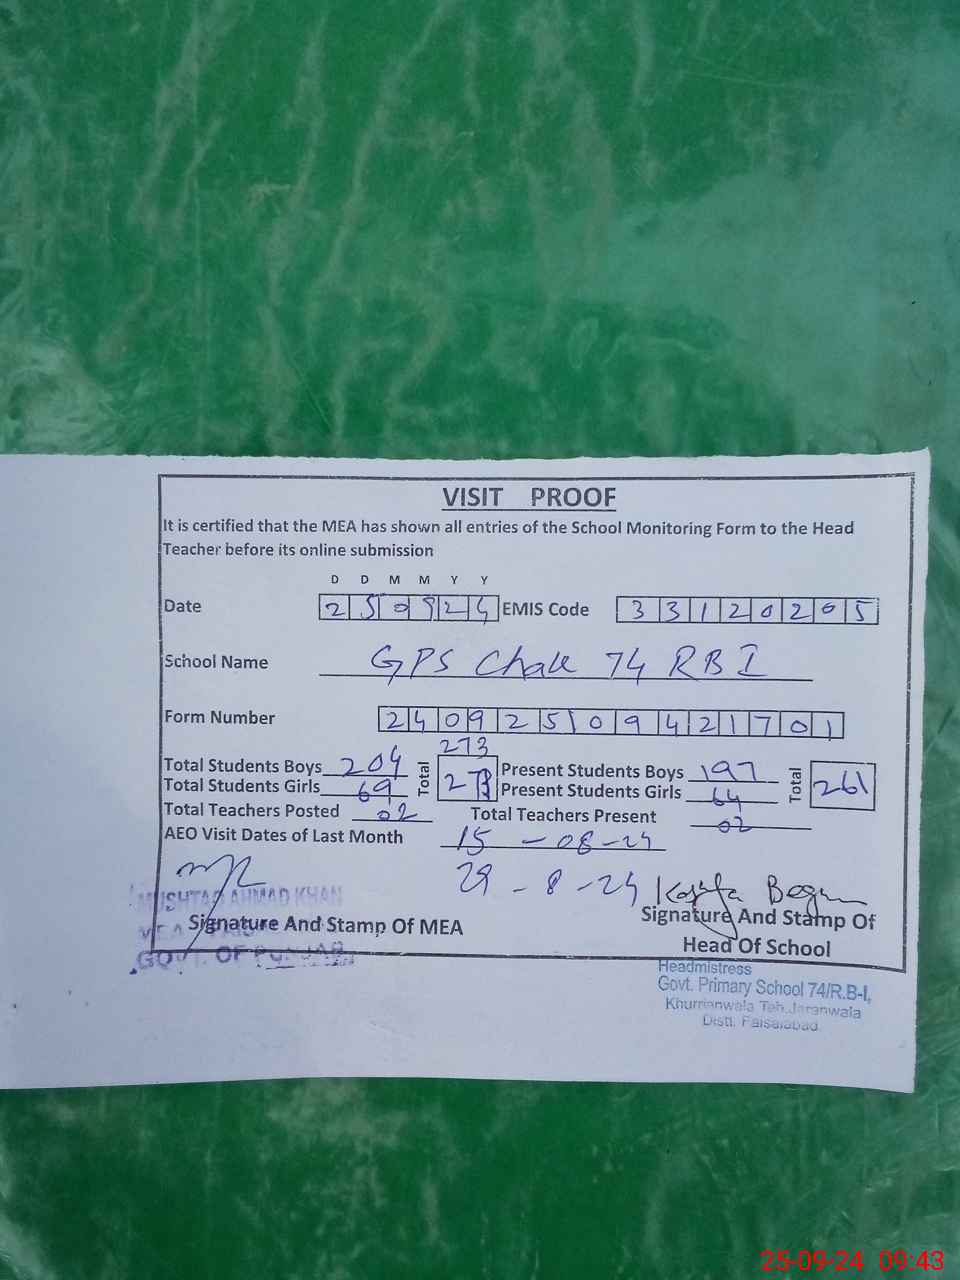 VISIT PROOF
It is certified that the MEA has shown all entries of the School Monitoring Form to the Head
Teacher before its online submission
D D M M Y Y
Date 250924 EMIS Code 33120205
School Name GPS Chak 74 RB I
Form Number 24092509421701
273
Total Students Boys 204 Total 273 Present Students Boys 197 Total 261
Total Students Girls 69 Present Students Girls 64
Total Teachers Posted 02 Total Teachers Present 02
AEO Visit Dates of Last Month 15-08-24
29-8-24
MUSHTAQ AHMAD KHAN
Signature And Stamp Of MEA
MEA
GOVT. OF PUNJAB
Begum
Signature And Stamp Of
Head Of School
Headmistress
Govt. Primary School 74/R.B-I,
Khurrianwala Teh. Jaranwala
Distt. Faisalabad
25-09-24 09:43